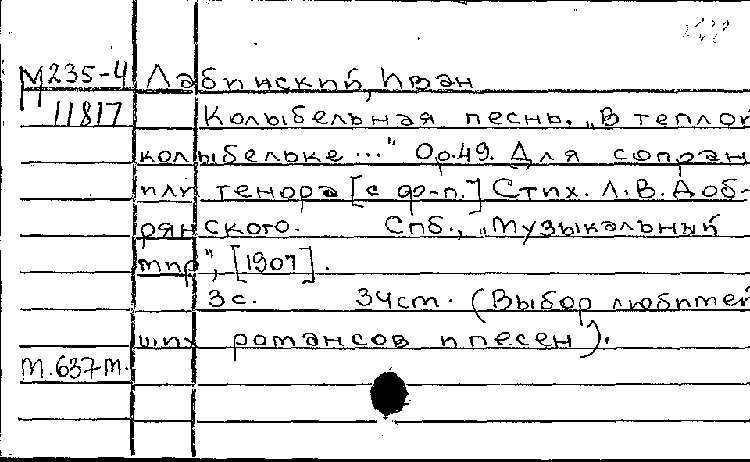 М235-4 Лабинский, Иван
11817 Колыбельная песнь. „В теплой
колыбельке..." Op.49. Для сопран
или тенора [с ф-п.] Стих. Л.В.Доб-
рянского. Спб., „Музыкальный
мир", [1907].
3с. 34ст. (Выбор любитей
ших романсов и песен).
т.637-т.